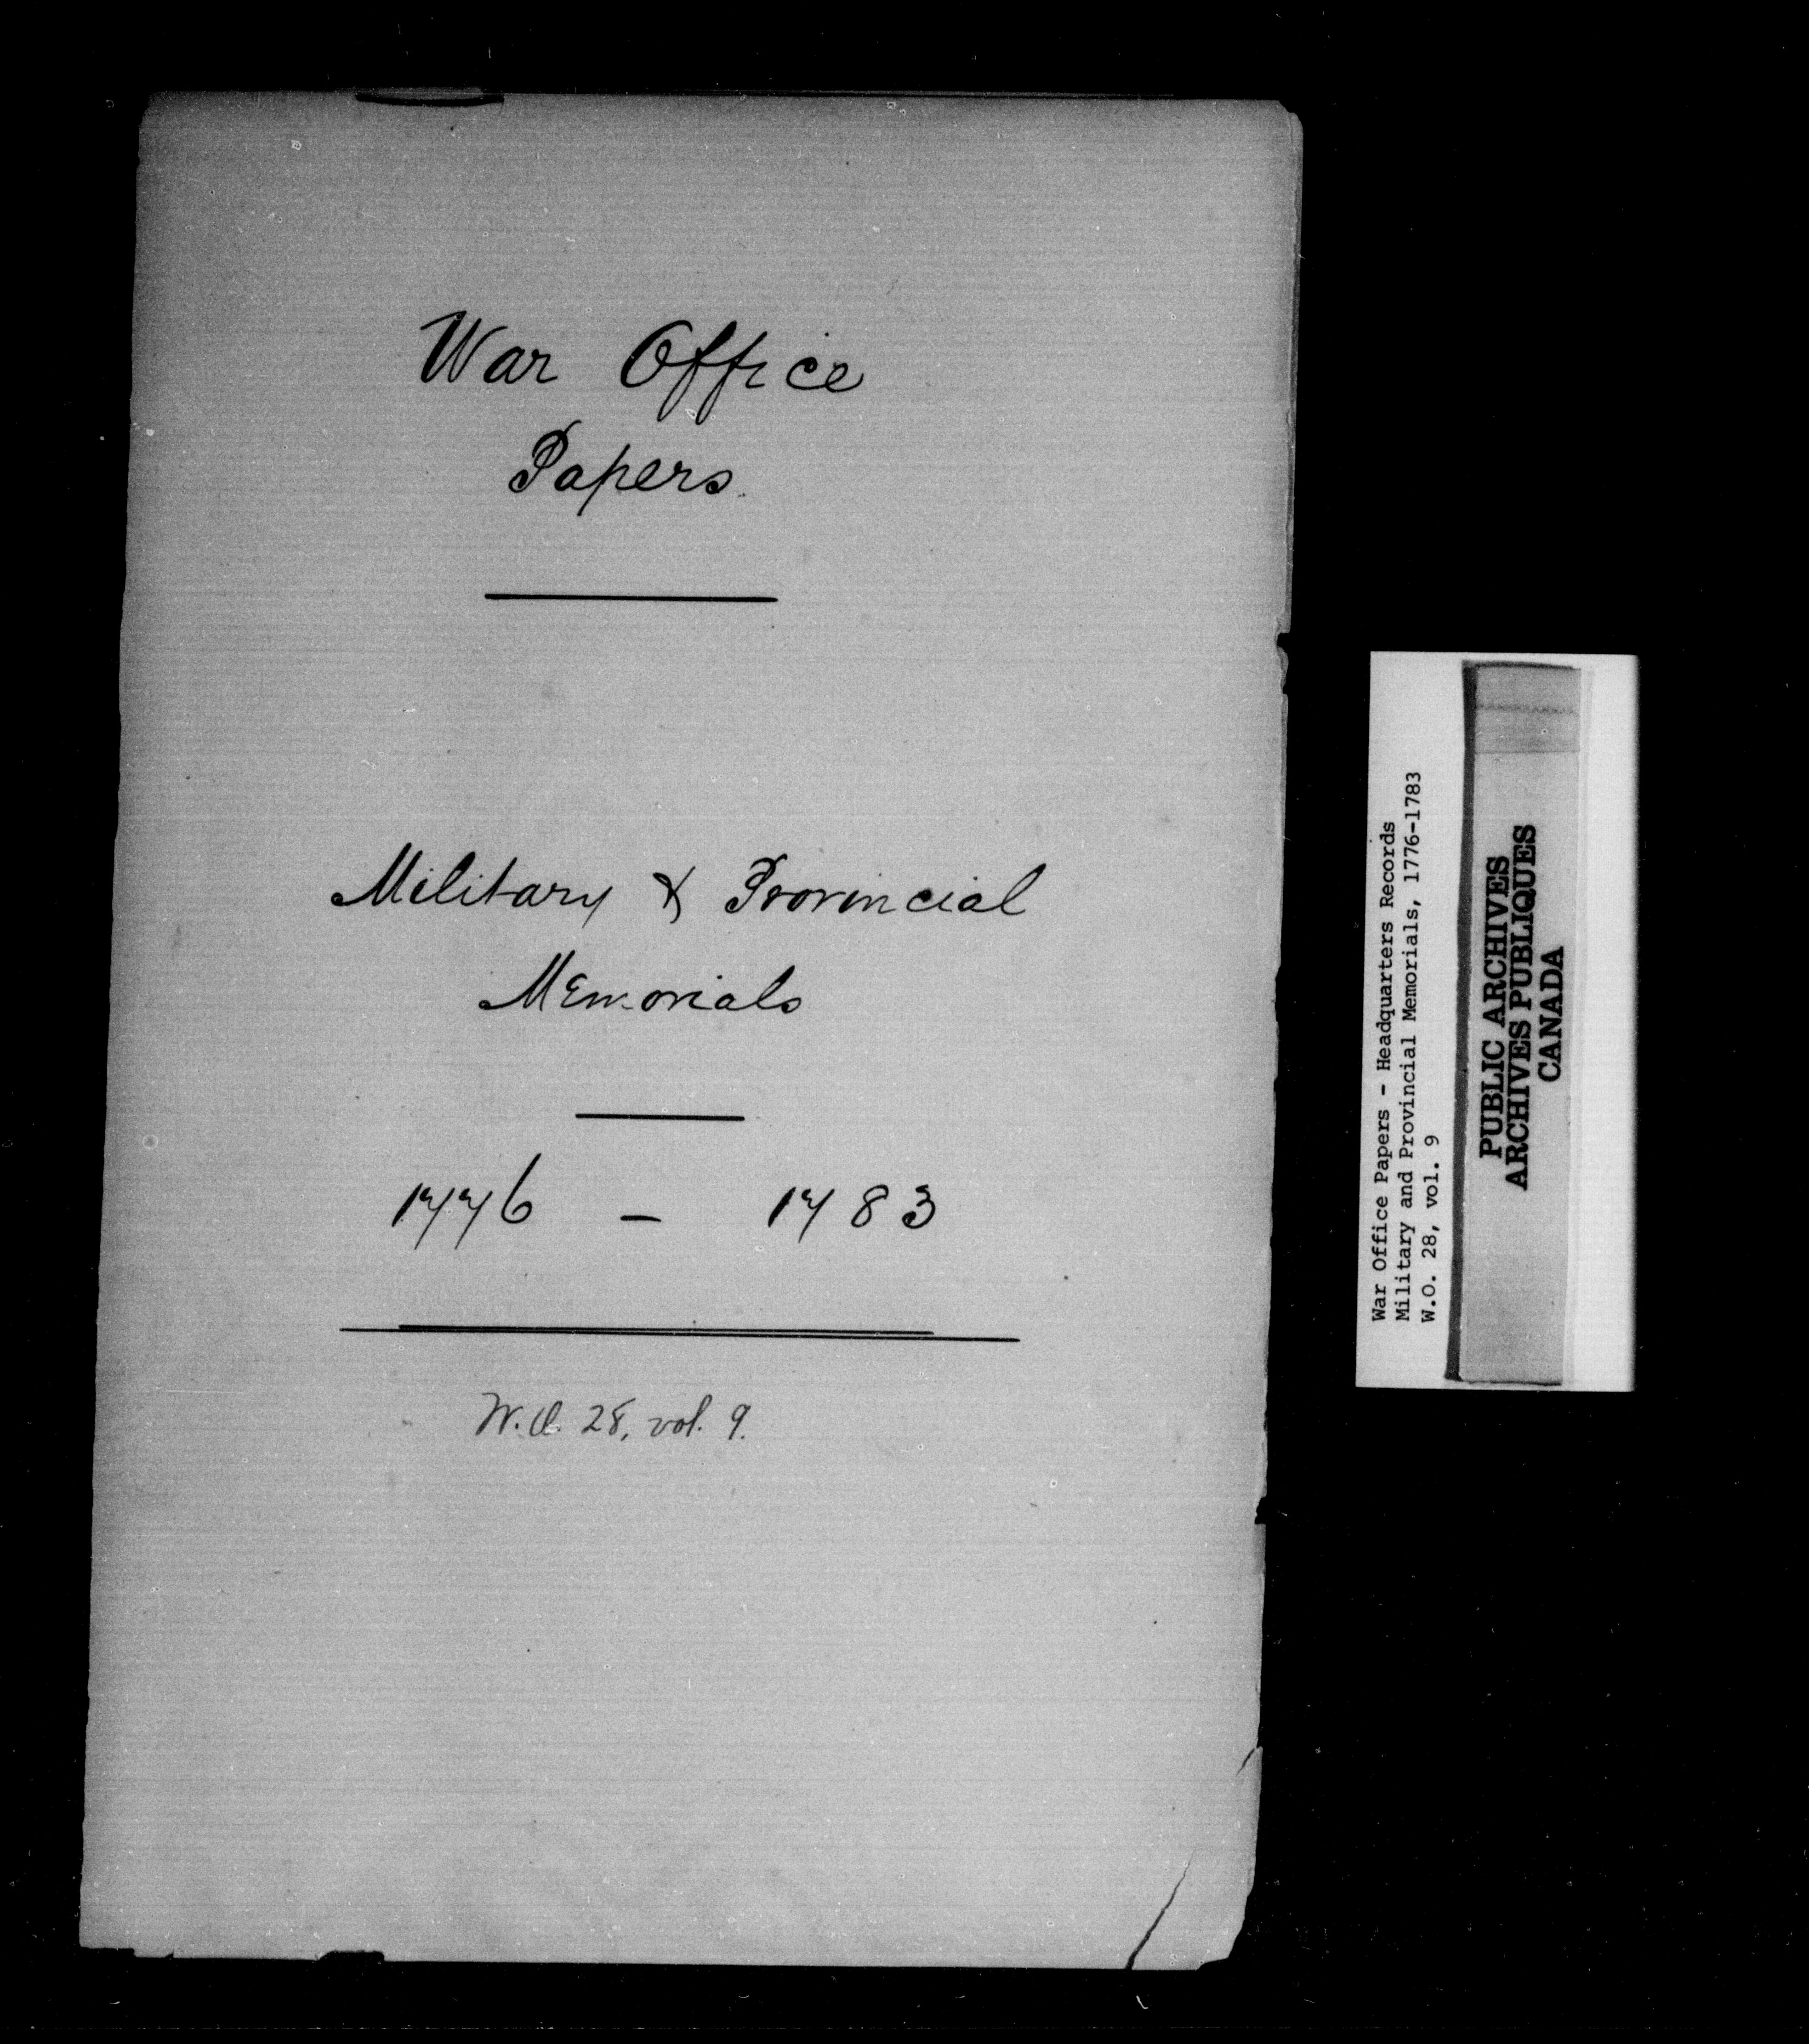 War Office
Papers.
Military & Provincial
Memorials
1776 - 1783
W.O. 28, vol. 9.
War Office Papers - Headquarters Records
Military and Provincial Memorials, 1776-1783
W.O. 28, vol. 9
PUBLIC ARCHIVES
ARCHIVES PUBLIQUES
CANADA